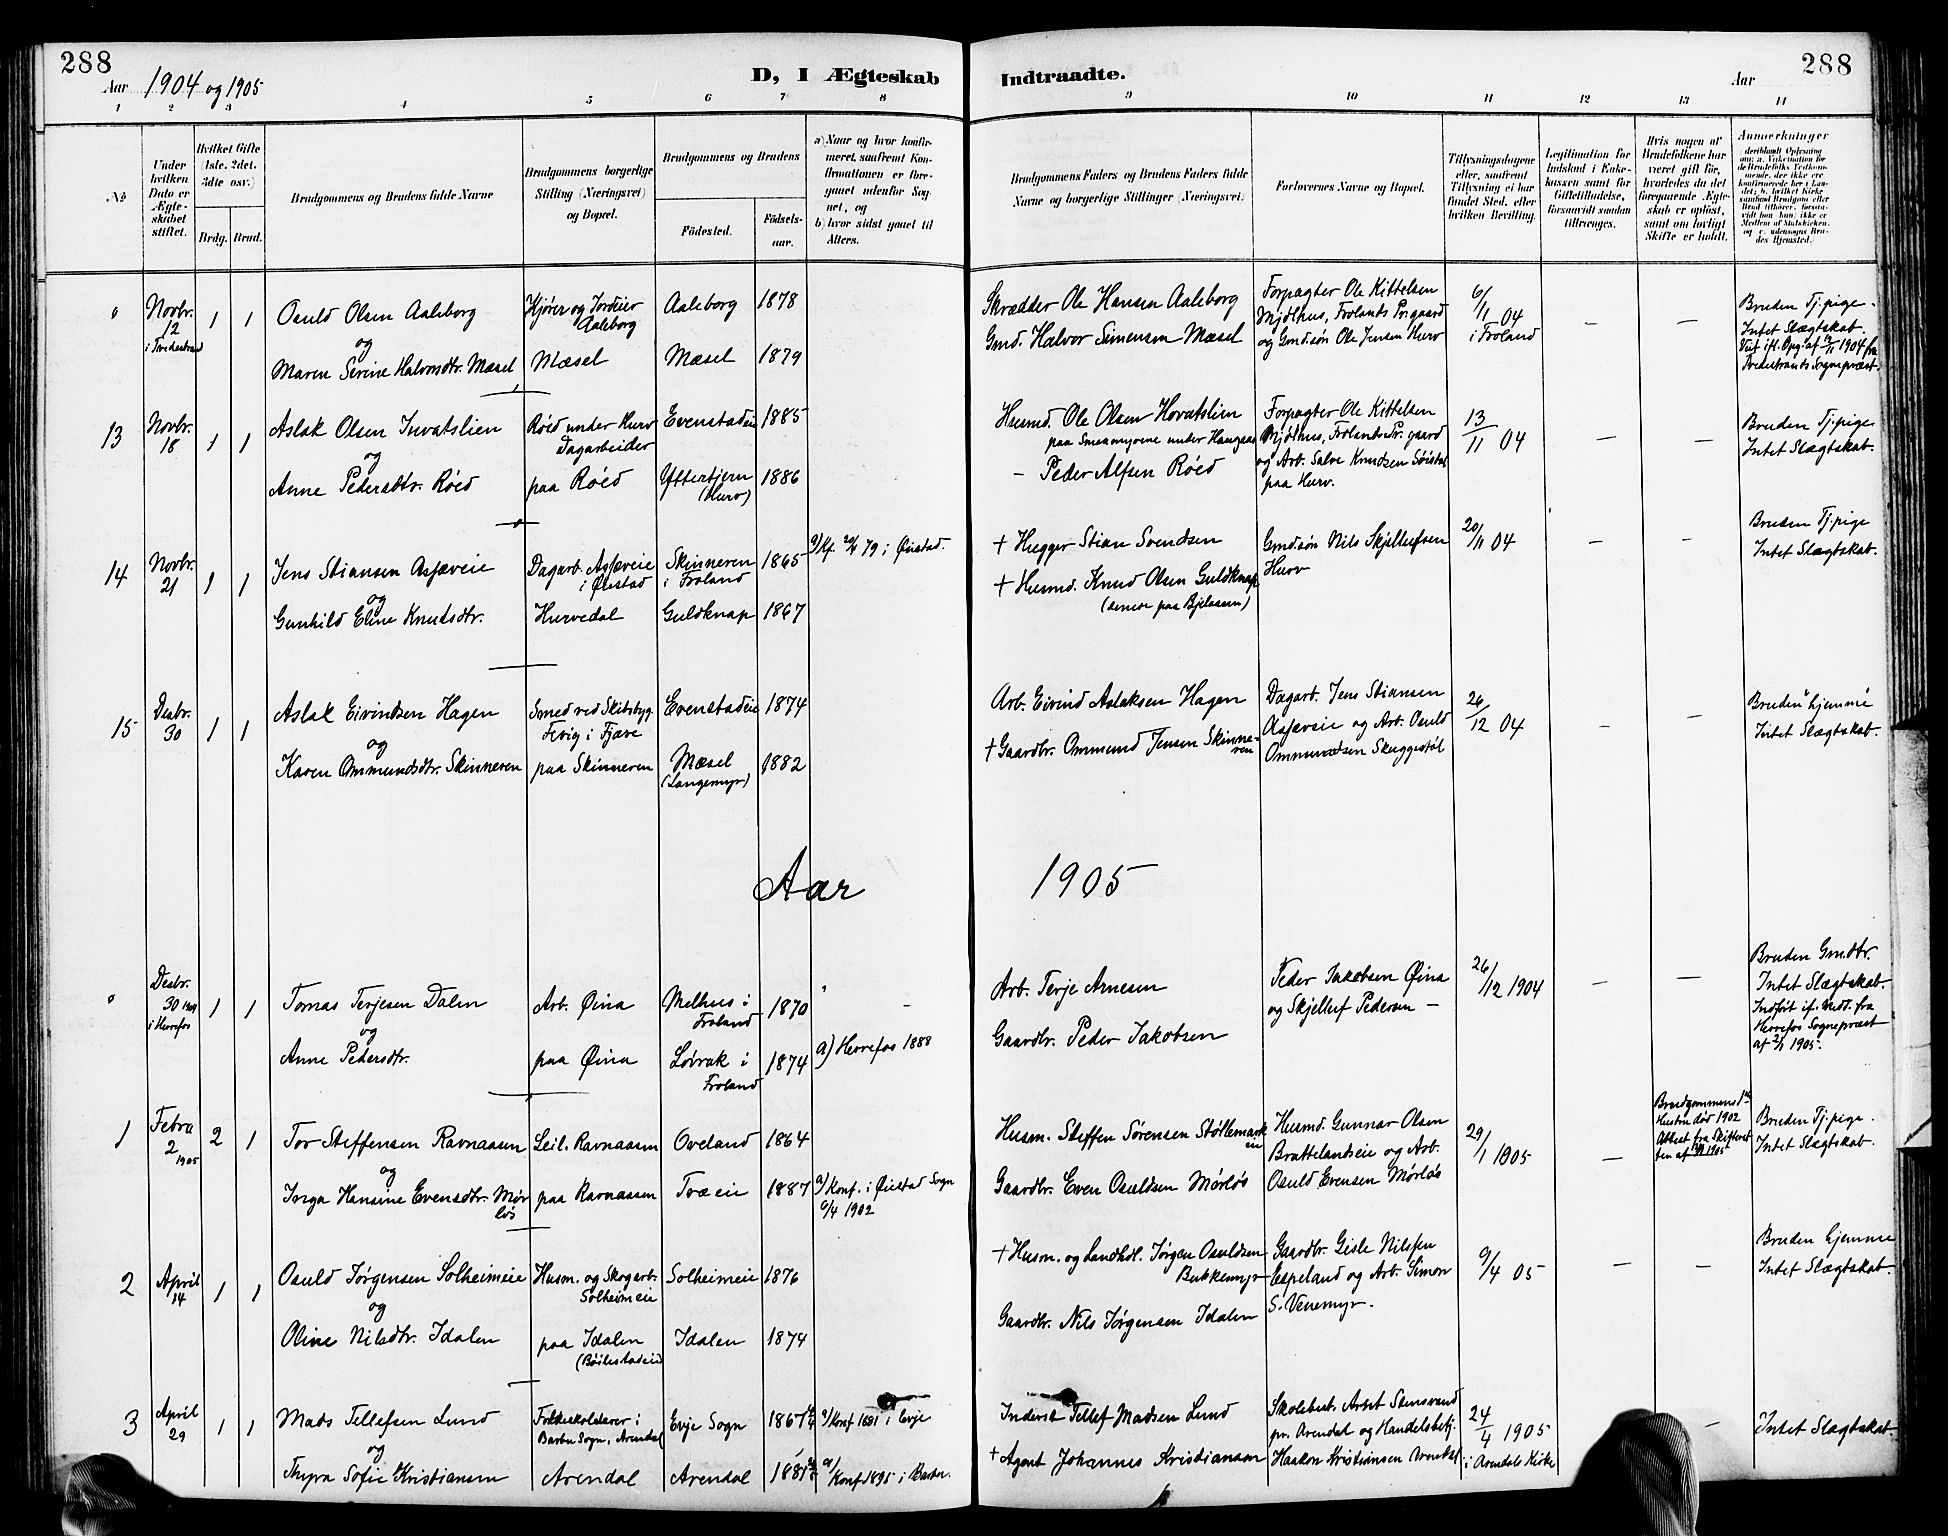 288
Aar 1904 og 1905
D, I Ægteskab
Indtraadte.
Aar
288
1 2 3 4 5 6 7 8 9 10 11 12 13 14
No
Under hvilken Dato er Ægteskabet stiftet.
Hvilket Gifte (1ste. 2det. 3dte osv.)
Brdg. Brud.
Brudgommens og Brudens fulde Navne
Brudgommens borgerlige Stilling (Næringsvei) og Bopæl.
Brudgommens og Brudens
Födested.
Födselsaar.
a) Naar og hvor konfirmeret, saafremt Konfirmationen er foregaaet udenfor Sognet, og
b) hvor sidst gaaet til Alters.
Brudgommens Faders og Brudens Faders fulde Navne og borgerlige Stillinger (Næringsvei).
Forlovernes Navne og Bopæl.
Tillysningsdagene eller, saafremt Tillysning ei har fundet Sted, efter hvilken Bevilling.
Legitimation for Indskud i Enkekassen samt for Giftetilladelse, forsaavidt saadan tiltrænges.
Hvis nogen af Brudefolkene har været gift för, hvorledes da det foregaaende Ægteskab er oplöst, samt om lovligt Skifte er holdt.
Anmærkninger
0
Novbr. 12
1 1
Osuld Olsen Aaleborg
og
Maren Serine Halvorsdtr. Mæsel
Kjörer og Jordeier
Aaleborg
Mæsel
Aaleborg 1878
Mæsel 1879
Skrædder Ole Hansen Aaleborg
Gmd. Halvor Simensen Mæsel
Forpagter Ole Kittelsen
Mjölhus, Frolands Pr.gaard
og Gmd.søn Ole Jensen Hurv
6/1 04
i Froland
—
—
Bruden Tj.pige.
Intet Slægtskab.
13
Novbr. 18
1 1
Aslak Olsen Juvatslien
og
Anne Pedersdtr. Röed
Röed under Hurv
Dagarbeider
paa Röed
Evenstadeie 1885
Yttertjern 1886
(Hurv)
Husmd. Ole Olsen Hovatslien
— Peder Alfsen Röed
Forpagter Ole Kittelsen
Mjölhus, Frolands Pr.gaard
og Arb. Salve Knudsen
paa Hurv.
13/11 04
—
—
Bruden Tj.pige
Intet Slægtskab.
14
Novbr. 21
1 1
Jens Stiansen Asfæveie
og
Gunhild Eline Knudsdtr.
Dagarb. Asfæveie
i Øiestad
Hurvedal
Skinneren 1865
i Froland
Guldknap 1867
i Øiestad.
+ Hugger Stian Svendsen
+ Husmd. Knud Olsen Guldknap
Gmd.søn Nils Skjellefsen
Hurv
20/11 04
—
—
Bruden Tj.pige
Intet Slægtskab.
15
Desbr. 30
1 1
Aslak Eivindsen Hagen
og
Karen Ommundsdtr. Skinneren
Smed ved Skibsbyg.
Fevig i Fjære
paa Skinneren
Evenstadeie 1874
Mæsel 1882
(Langemyr)
Arb. Eivind Aslaksen Hagen
+ Gaardbr. Ommund Jensen Skinneren
Dagarb. Jens Stiansen
Asfæveie og Arb. Osuld
Ommundsen Skuggestöl
26/12 04
—
—
Bruden "hjemme"
Intet Slægtskab.
Aar 1905
0
Desbr. 30 1904
i Herrefos
1 1
Tomas Terjesen Dalen
og
Anne Pedersdtr.
Arb. Øina
paa Øina
Melhus i 1870
Froland
Lövrak i 1874
Froland
a) Herrefos 1888
Arb. Terje Arnesen
Gaardbr. Peder Jakobsen
Peder Jakobsen Øina
og Skjellef Pedersen —
26/12 1904
—
—
Bruden Gmdtr.
Intet Slægtskab.
Indfört ifl. Medd. fra
Herrefos Sognepræst
1
Febru 2 1905
2 1
Tor Steffensen Ravnaasen
og
Inga Hansine Evensdtr. Mörlös
Leil. Ravnaasen
paa Ravnaasen
Oveland 1864
Træeie 1887
a) Konf. i Øiestad Sogn
6/4 1902
Husm. Steffen Sörensen
Gaardbr. Even Osuldsen Mörlös
Husmd. Gunnar Olsen
Brattelandseie og Arb.
Osuld Evensen Mörlös
29/1 1905
—
Brudgommens 1ste
Hustru död 1902
Bruden Tj.pige.
Intet Slægtskab.
2
April 14
1 1
Osuld Jörgensen Solheimeie
og
Oline Nilsdtr. Idalen
Husm. og Skogarb.
Solheimeie
paa Idalen
Solheimeie 1876
Idalen 1874
+ Husm. og Landhdl. Jörgen Osuldsen
Bukkemyr
Gaardbr. Nils Jörgensen Idalen
Gaardbr. Gisle Nilssen
Espeland og Arb. Simon
S. Venemyr.
9/4 05
—
—
Bruden hjemme
Intet Slægtskab.
3
April 29
1 1
Mads Tellefsen Lund
og
Thyra Sofie Kristiansen
Folkeskolelærer i
Barbu Sogn, Arendal
Arendal
Evje Sogn 1867
Arendal 1881
a) Konf 1881 i Evje
a) Konf 1895 i Barbu.
Inderst Tellef Madsen Lund
+ Agent Johannes Kristiansen
Skolebest. Arnt Stensvand
pr. Arendal og Handelsbetj.
Haakon Kristiansen Arendal
24/4 1905
i Arendals Kirke
—
Intet Slægtskab.